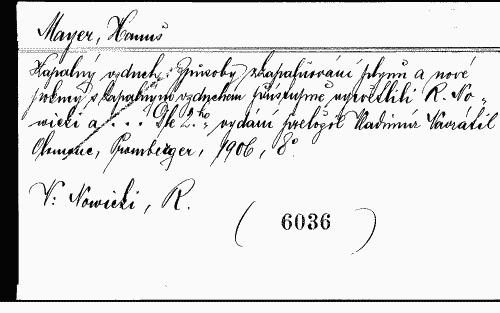 Mayer, Hanuš
Kapalný vzduch: Způsoby zkapalňování plynů a nové
pokusy s kapalným vzduchem přístupně vysvětlili R. No-
wicki a ... Dle 2.ho vydání přeložil Vladimír Vavrátil
Olomouc, Promberger, 1906, 8°.
V: Nowicki, R.
(6036)